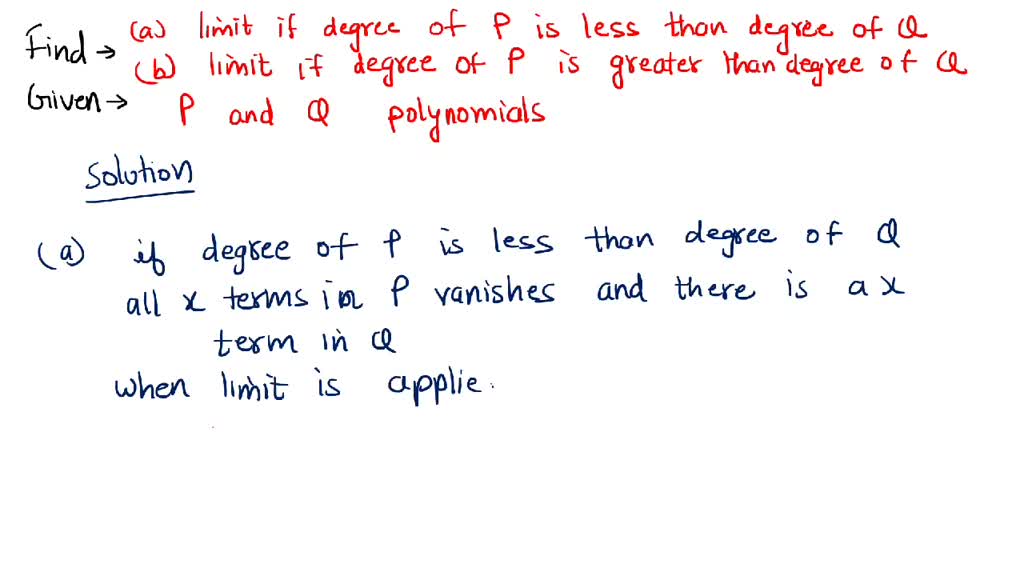 Find → (a) limit if degree of P is less than degree of Q
(b) limit if degree of P is greater than degree of Q
Given → P and Q polynomials
Solution
(a) if degree of P is less than degree of Q
all x terms in P vanishes and there is a x
term in Q
when limit is applie.